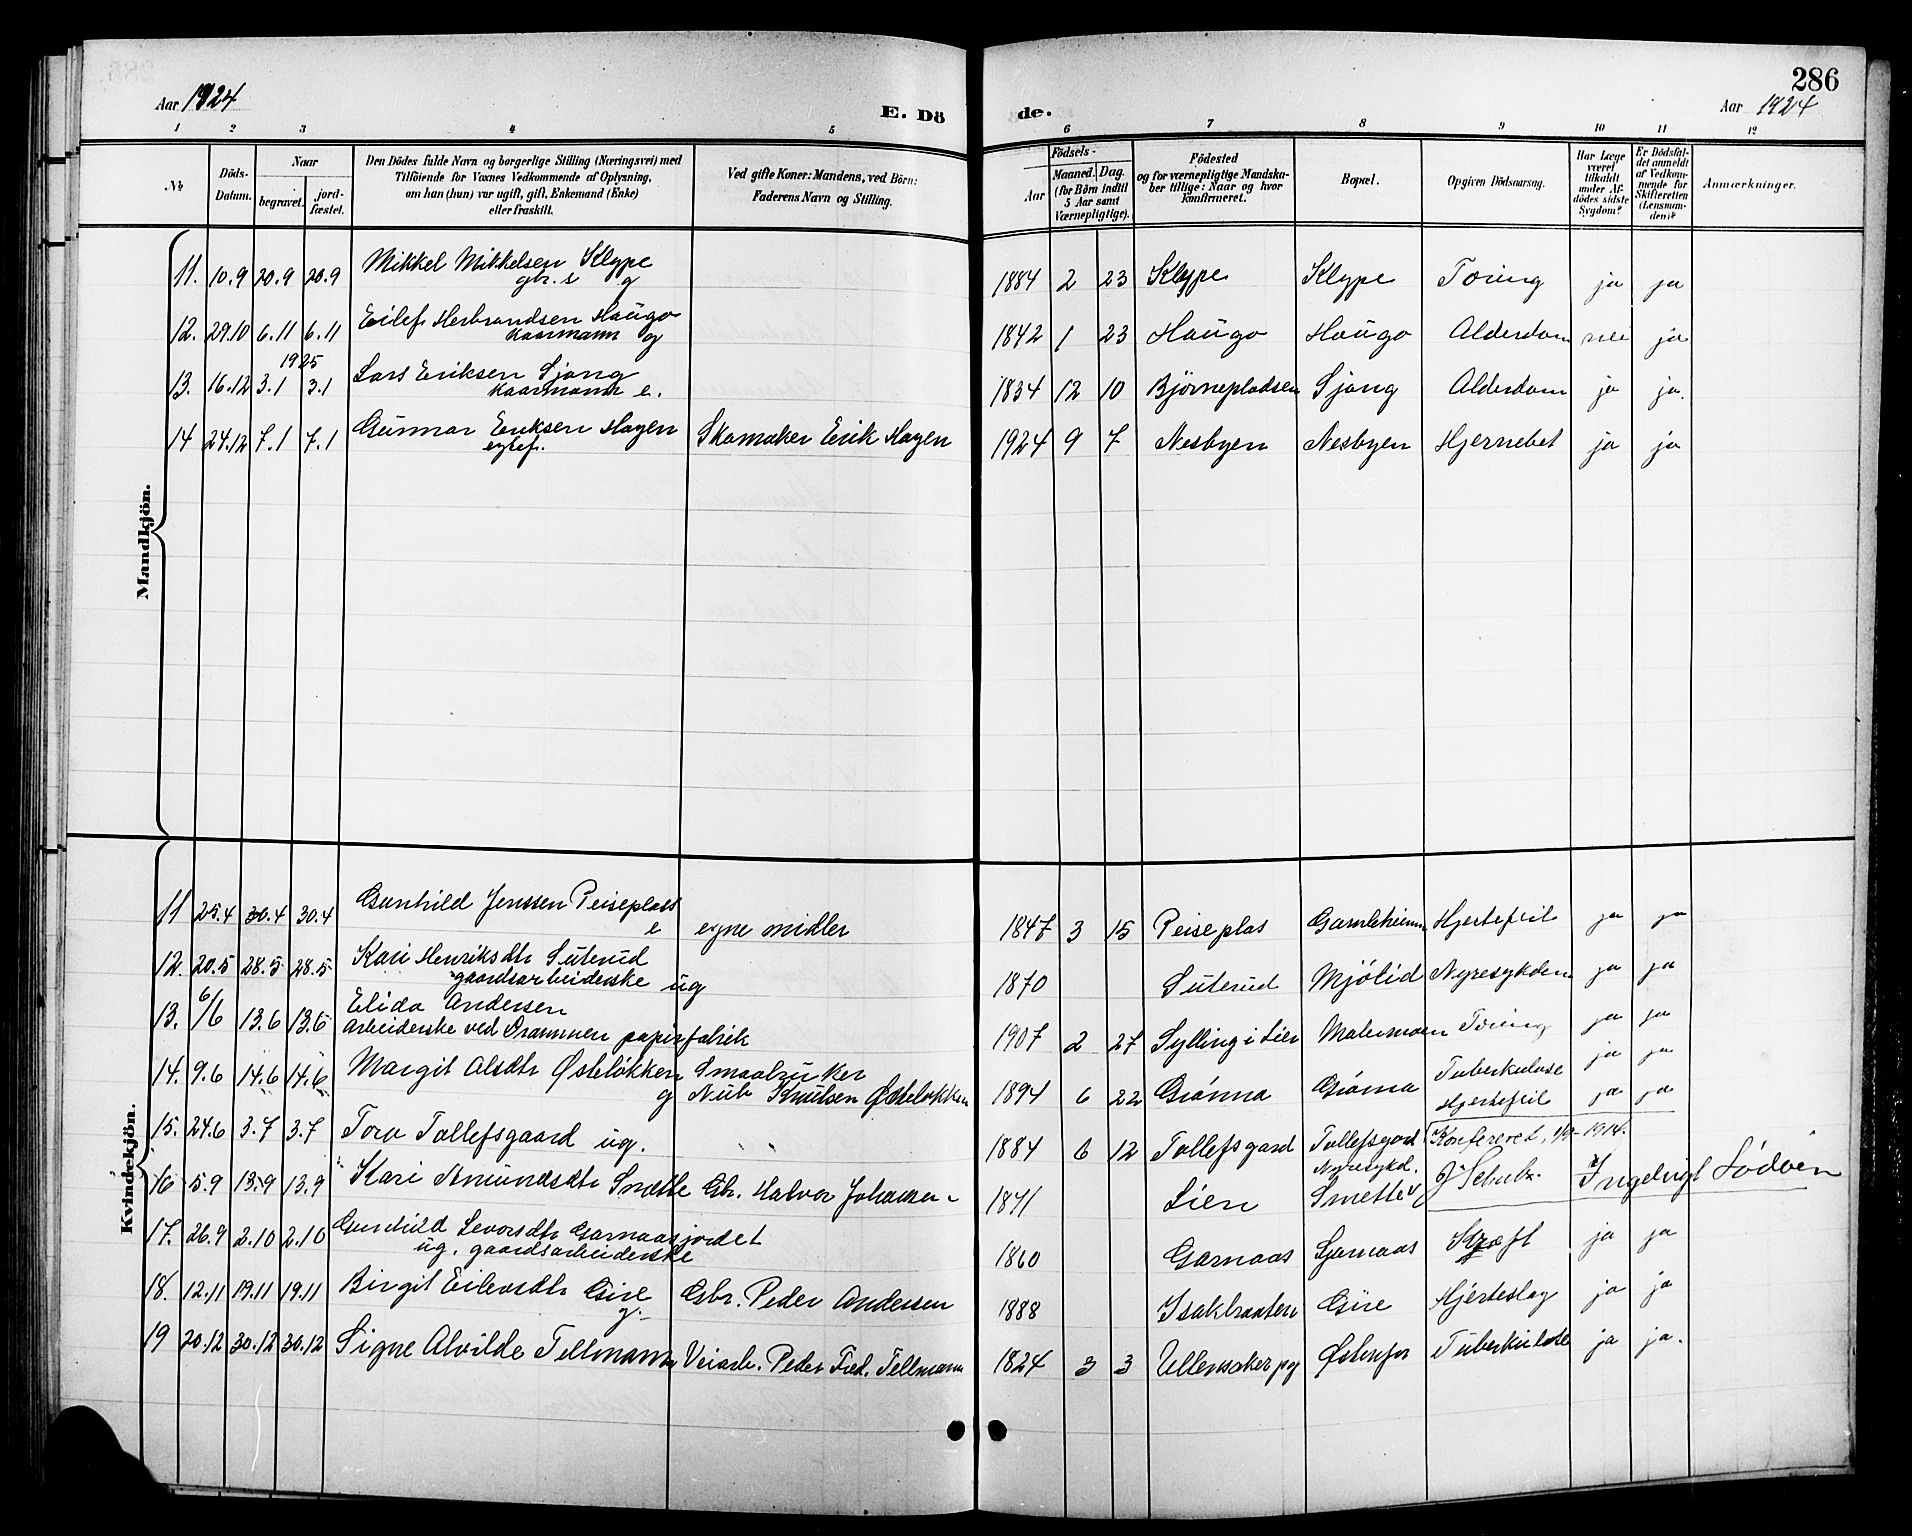 286
Aar 1924
E. Dö
de.
Aar 1924
1 2 3 4 5 6 7 8 9 10 11 12
No
Döds-Datum.
Naar
begravet.
jord-fæstet.
Den Dödes fulde Navn og borgerlige Stilling (Næringsvei) med
Tilföiende for Voxnes Vedkommende af Oplysning,
om han (hun) var ugift, gift, Enkemand (Enke)
eller fraskilt.
Ved gifte Koner: Mandens, ved Börn:
Faderens Navn og Stilling.
Födsels-
Aar
Maaned. Dag.
(for Börn indtil
5 Aar samt
Værnepligtige).
Födested
og for værnepligtige Mandska-
ber tillige: Naar og hvor
konfirmeret.
Bopæl.
Opgiven Dödsaarsag.
Har Læge
været
tilkaldt
under Af-
dödes sidste
Sygdom?
Er Dödsfal-
det anmeldt
af Vedkom-
mende for
Skifteretten
(Lensman-
den)?
Anmærkninger.
Mandkjön.
11. 10.9 20.9 20.9 Mikkel Mikkelsen Klype 1884 2 23 Klype Klype Tæring ja ja
gbr. s g
12. 29.10 6.11 6.11 Eilef Herbrandsen Haugo 1842 1 23 Haugo Haugo Alderdom nei ja
Kaarmann g
1925
13. 16.12 3.1 3.1 Lars Eriksen Sjong 1834 12 10 Bjørnepladsen Sjong Alderdom ja ja.
Kaarmann e.
14 24.12 7.1 7.1 Gunnar Eriksen Hagen Skomaker Erik Hagen 1924 9 7 Nesbyen Nesbyen Hjernebet ja ja
egtef.
Kvindekjön.
11 25.4 30.4 30.4 Gunhild Jenssen Peiseplass 1847 3 15 Peiseplas Gamleheimen Hjertefeil ja ja
e egne midler
12. 20.5 28.5 28.5 Kari Henriksdtr Suterud 1870 Suterud Mjölid Nyresykdom ja ja
gaardsarbeiderske ug
13. 6/6 13.6 13.6 Elida Andersen 1907 2 27 Sylling i Lier Malermoen Tæring ja ja
Arbeiderske ved Drammen papirfabrik
14. 9.6 14.6 14.6 Margit Olsdtr Østeløkken Smaabruker 1894 6 22 Grönna Grönna Tuberkulose ja ja
g Nub Knutsen Østeløkken
15. 24.6 3.7 3.7 Toro Tollefsgaard ug. 1884 6 12 Tollefsgard Tollefsgard Hjertefeil ja ja
Konfereret, 1/9-1914.
16 5.9 13.9 13.9 Kari Amundsdtr Smette Gbr. Halvor Johannsen 1841 Lien Smette Nyresykd.
J Schulz. Ingebrigt Södvin
17. 26.9 2.10 2.10 Gunhild Levorsdtr Garnaasjordet 1860 Garnaas Garnaas Kræft ja ja
ug. gaardsarbeiderske
18. 12.11 19.11 19.11 Birgit Eilevsdtr Gire Gbr. Peder Andersen 1888 Isakbraaten Gire Hjerteslag ja ja
g.
19 20.12 30.12 30.12 Signe Alvilde Tellmann Veiarb. Peder Fred. Tellmann 1824 3 3 Ullensaker pg Østenfor Tuberkulose ja ja.